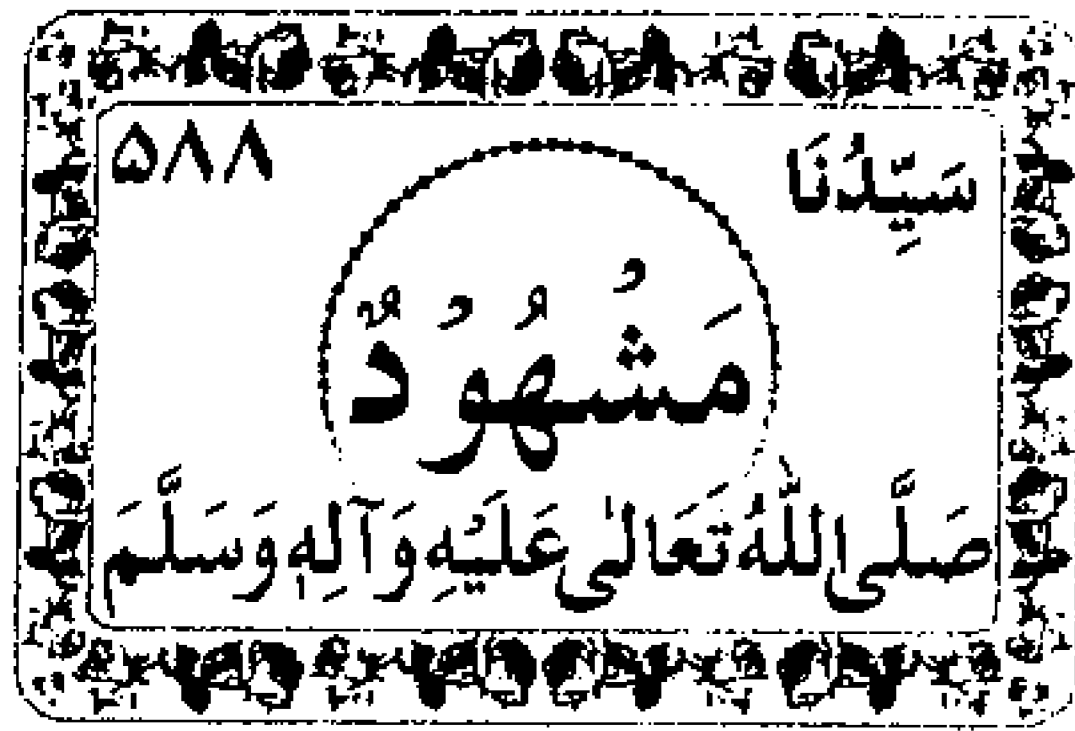 سَيِّدُنَا ۵۸۸
مَشْهُوْدٌ
صَلَّى اللّٰهُ تَعَالىٰ عَلَيْهِ وَآلِهٖ وَسَلَّمَ